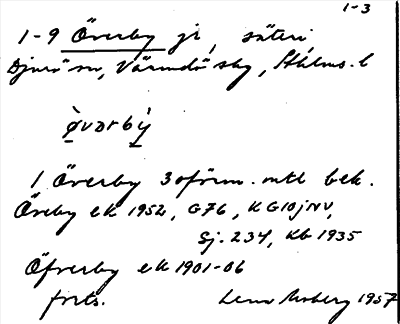 1-3
1-9 Överby jr, säteri
Djurö sn, Värmdö skg, Sthlms. l
ø̀vərbý
1 Överby 3 oförm. mtl bek.
Öreby ek 1952, G76, KG10jNV,
Sj. 234, Kb 1935
Öfverby ek 1901-06
forts. 1957